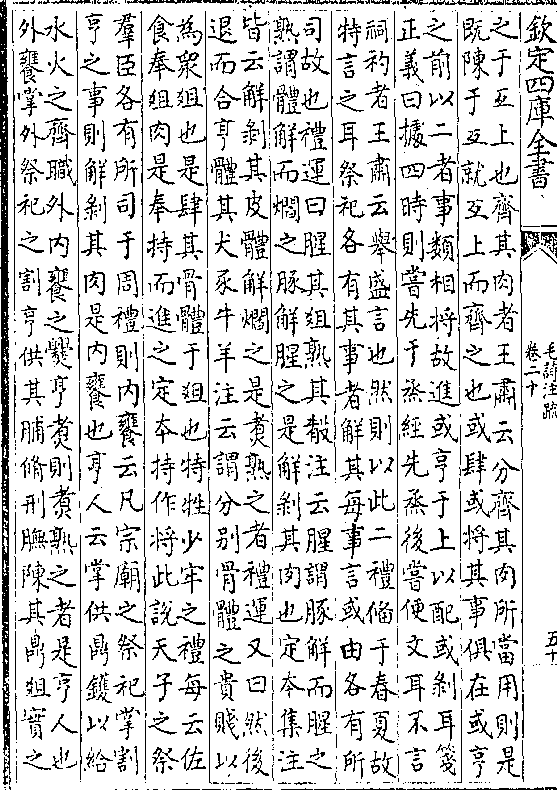 欽定四庫全書
毛詩注疏
卷二十
五十
之于互上也齊其肉者王肅云分齊其肉所當用則是
既陳于互就互上而齊之也或肆或將其事俱在或亨
之前以二者事類相將故進或亨于上以配或剥耳箋
正義曰據四時則嘗先于烝經先烝後嘗便文耳不言
祠礿者王肅云舉盛言也然則以此二禮偹于春夏故
特言之耳祭祀各有其事者解其每事言或由各有所
司故也禮運曰腥其俎熟其殽注云腥謂豚解而腥之
熟謂體解而爓之豚解腥之是解剥其肉也定本集注
皆云解剥其皮體解爓之是煑熟之者禮運又曰然後
退而合亨體其犬豕牛羊注云謂分别骨體之貴賤以
為衆俎也是肆其骨體于俎也特牲少牢之禮每云佐
食奉俎肉是奉持而進之定本持作將此說天子之祭
羣臣各有所司于周禮則内饔云凡宗廟之祭祀掌割
亨之事則解剥其肉是内饔也亨人云掌供鼎鑊以給
水火之齊職外内饔之爨亨煑則煑熟之者是亨人也
外饔掌外祭祀之割亨供其脯脩刑膴陳其鼎俎實之